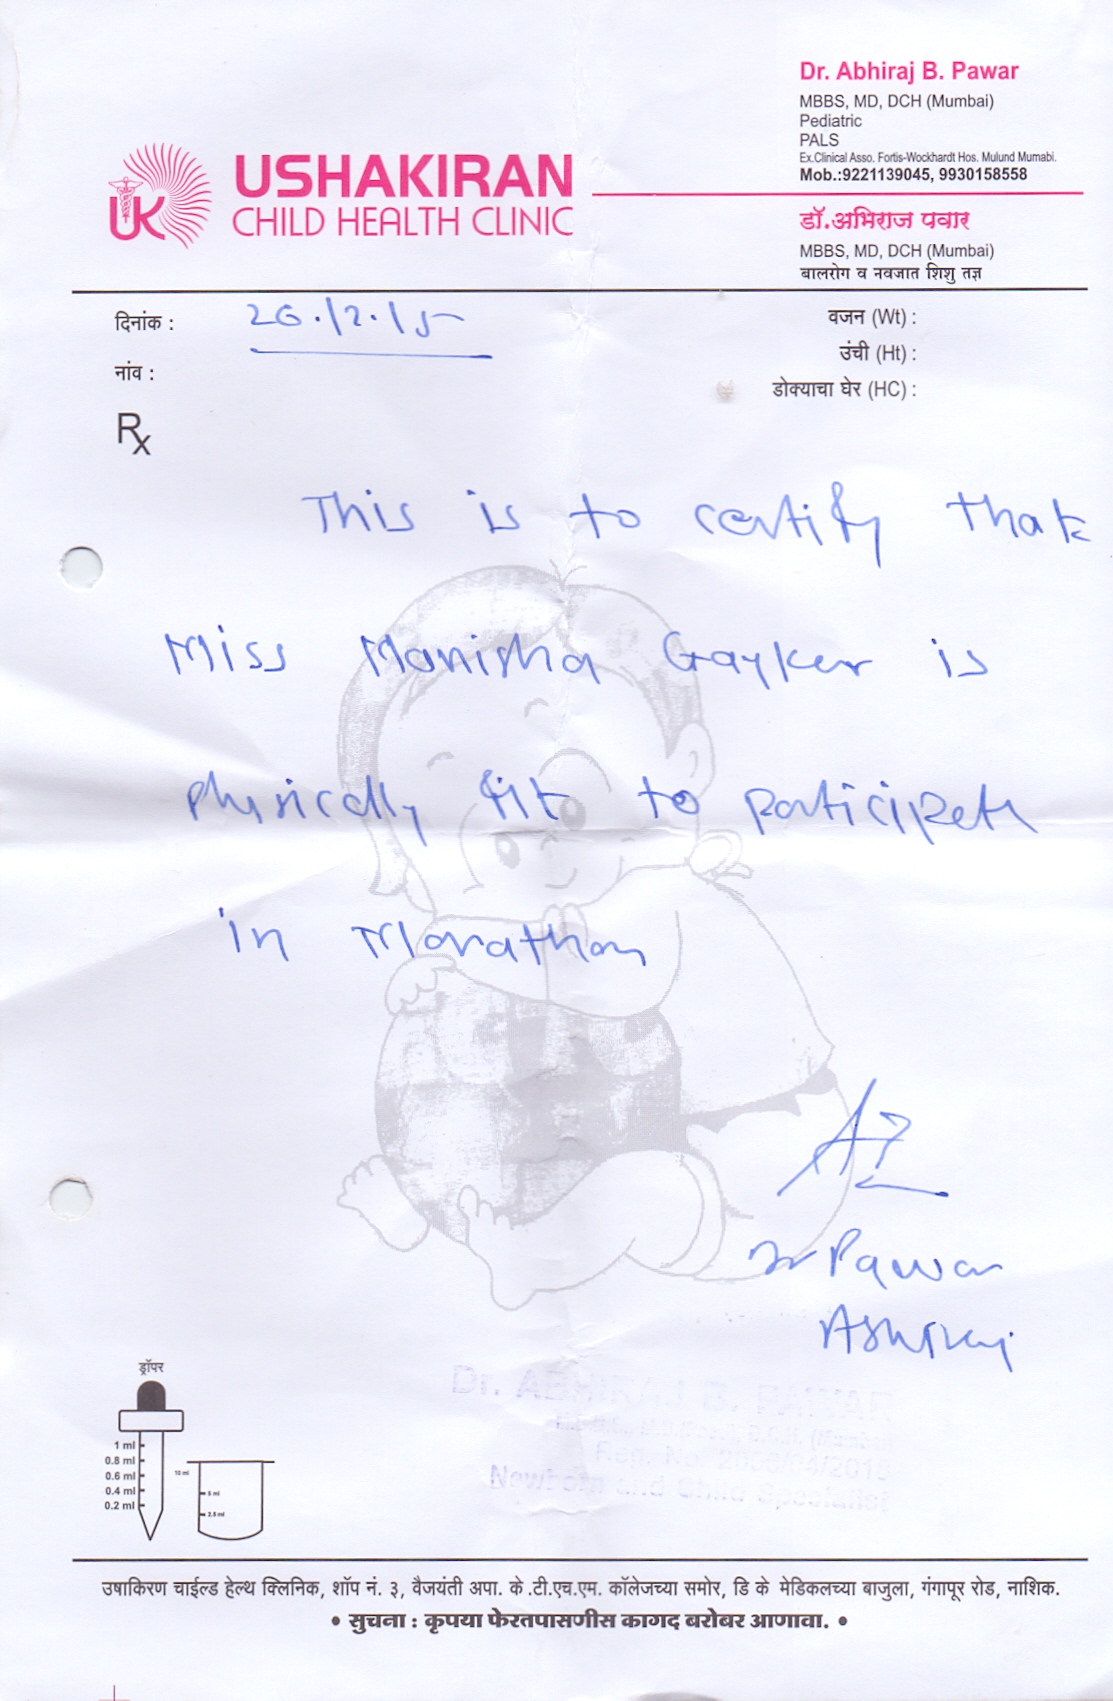 Dr. Abhiraj B. Pawar
MBBS, MD, DCH (Mumbai)
Pediatric
PALS
Ex.Clinical Asso. Fortis-Wockhardt Hos. Mulund Mumabi.
Mob.:9221139045, 9930158558
UK
USHAKIRAN
CHILD HEALTH CLINIC
डॉ.अभिराज पवार
MBBS, MD, DCH (Mumbai)
बालरोग व नवजात शिशु तज्ञ
दिनांक : 26.12.15
वजन (Wt) :
नांव :
उंची (Ht) :
डोक्याचा घेर (HC) :
Rx
This is to certify that
Miss Manisha Gayker is
physically fit to participate
in Marathon
Dr Pawar
Abhiraj
Dr. ABHIRAJ B. PAWAR
Newborn and Child Specialist
ड्रॉपर
1 ml
0.8 ml
0.6 ml
0.4 ml
0.2 ml
10 ml
5 ml
2.5 ml
उषाकिरण चाईल्ड हेल्थ क्लिनिक, शॉप नं. ३, वैजयंती अपा. के .टी.एच.एम. कॉलेजच्या समोर, डि के मेडिकलच्या बाजुला, गंगापूर रोड, नाशिक.
• सुचना : कृपया फेरतपासणीस कागद बरोबर आणावा. •